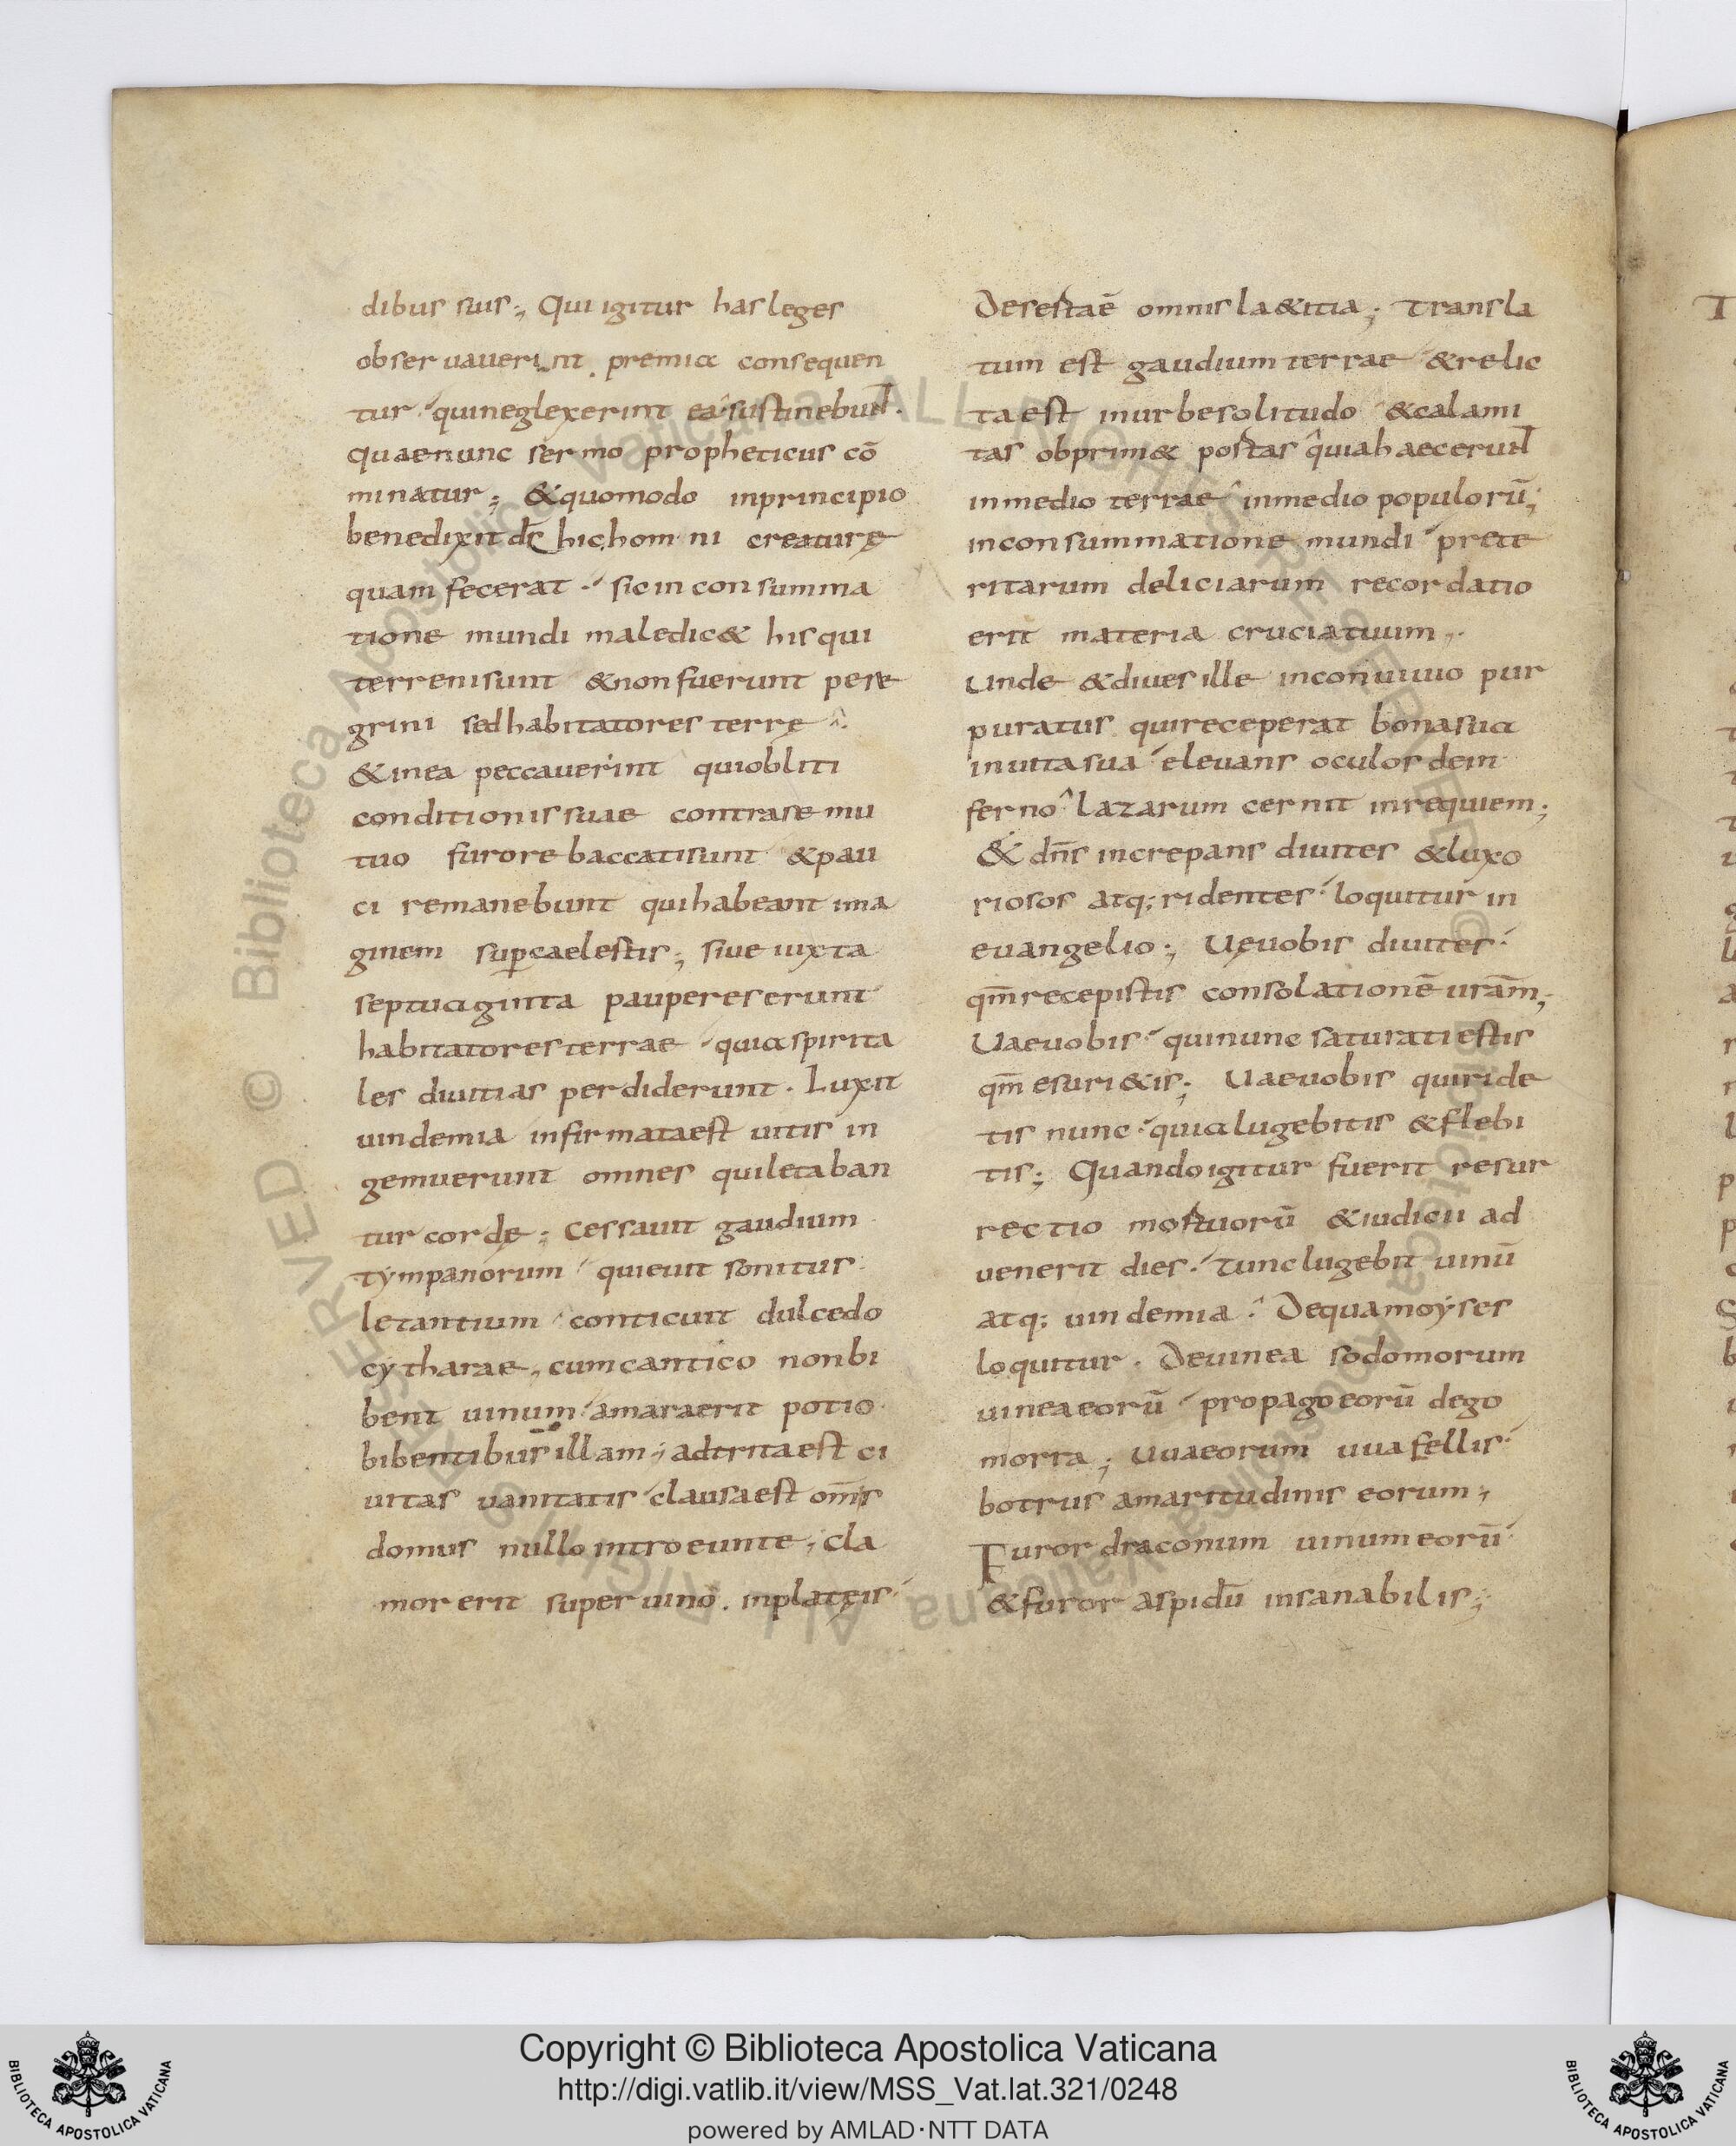 dibus suis; Qui igitur has leges
obseruauerint premia consequen
tur quineglexerint ea sustinebunt.
quaenunc sermo propheticus cō
minatur; &quomodo inprincipio
benedixit ds̄ hic hom ni creaturę
quam fecerat. sicinconsumma
tione mundi maledic& hisqui
terrenisunt &nonfuerunt pere
grini sedhabitatores terrę
&inea peccauerint quiobliti
conditionissuae contrase mu
tuo furore baccatisunt &pau
ci remanebunt quihabeant ima
ginem sup̄caelestis; siue iuxta
septuaginta pauperes erunt
habitatoresterrae quia spirita
les diuitias perdiderunt. Luxit
uindemia infirmataest uitis in
gemuerunt omnes quiletaban
tur corde; Cessauit gaudium
tympanorum quieuit sonitus
letantium conticuit dulcedo
cytharae, cumcantico nonbi
bent uinum amaraerit potio
bibentibus illam; adtritaest ci
uitas uanitatis clausaest om̄is
domus nullo introeunte; cla
mor erit super uino. inplateis
Desertaē omnis la&itia; Transla
tum est gaudium terrae &relic
taest inurbesolitudo &calami
tas obprim& portas quiahaecerunt
inmedio terrae inmedio populorū;
inconsummatione mundi prete
ritarum deliciarum recordatio
erit materia cruciatuum,
Unde &diues ille inconuiuio pur
puratus quireceperat bonasua
inuitasua eleuans oculos dein
ferno lazarum cernit inrequiem;
& dn̄s increpans diuites &luxo
riosos atq; ridentes loquitur in
euangelio; Uęuobis diuites
qm̄recepistis consolationē urām;
Uaeuobis quinunc saturatiestis
qm̄ esuri&is; Uaeuobis quiride
tis nunc quialugebitis &flebi
tis; Quandoigitur fuerit resur
rectio mortuorū &iudicii ad
uenerit dies. tunclugebit uinū
atq; uindemia. Dequamoyses
loquitur. Deuinea sodomorum
uineaeorū propagoeorū dego
morra; Uuaeorum uuafellis
botrus amaritudinis eorum;
Furor draconum uinumeorū
&furor aspidū insanabilis;
Copyright © Biblioteca Apostolica Vaticana
http://digi.vatlib.it/view/MSS_Vat.lat.321/0248
powered by AMLAD·NTT DATA
BIBLIOTECA APOSTOLICA VATICANA
BIBLIOTECA APOSTOLICA VATICANA